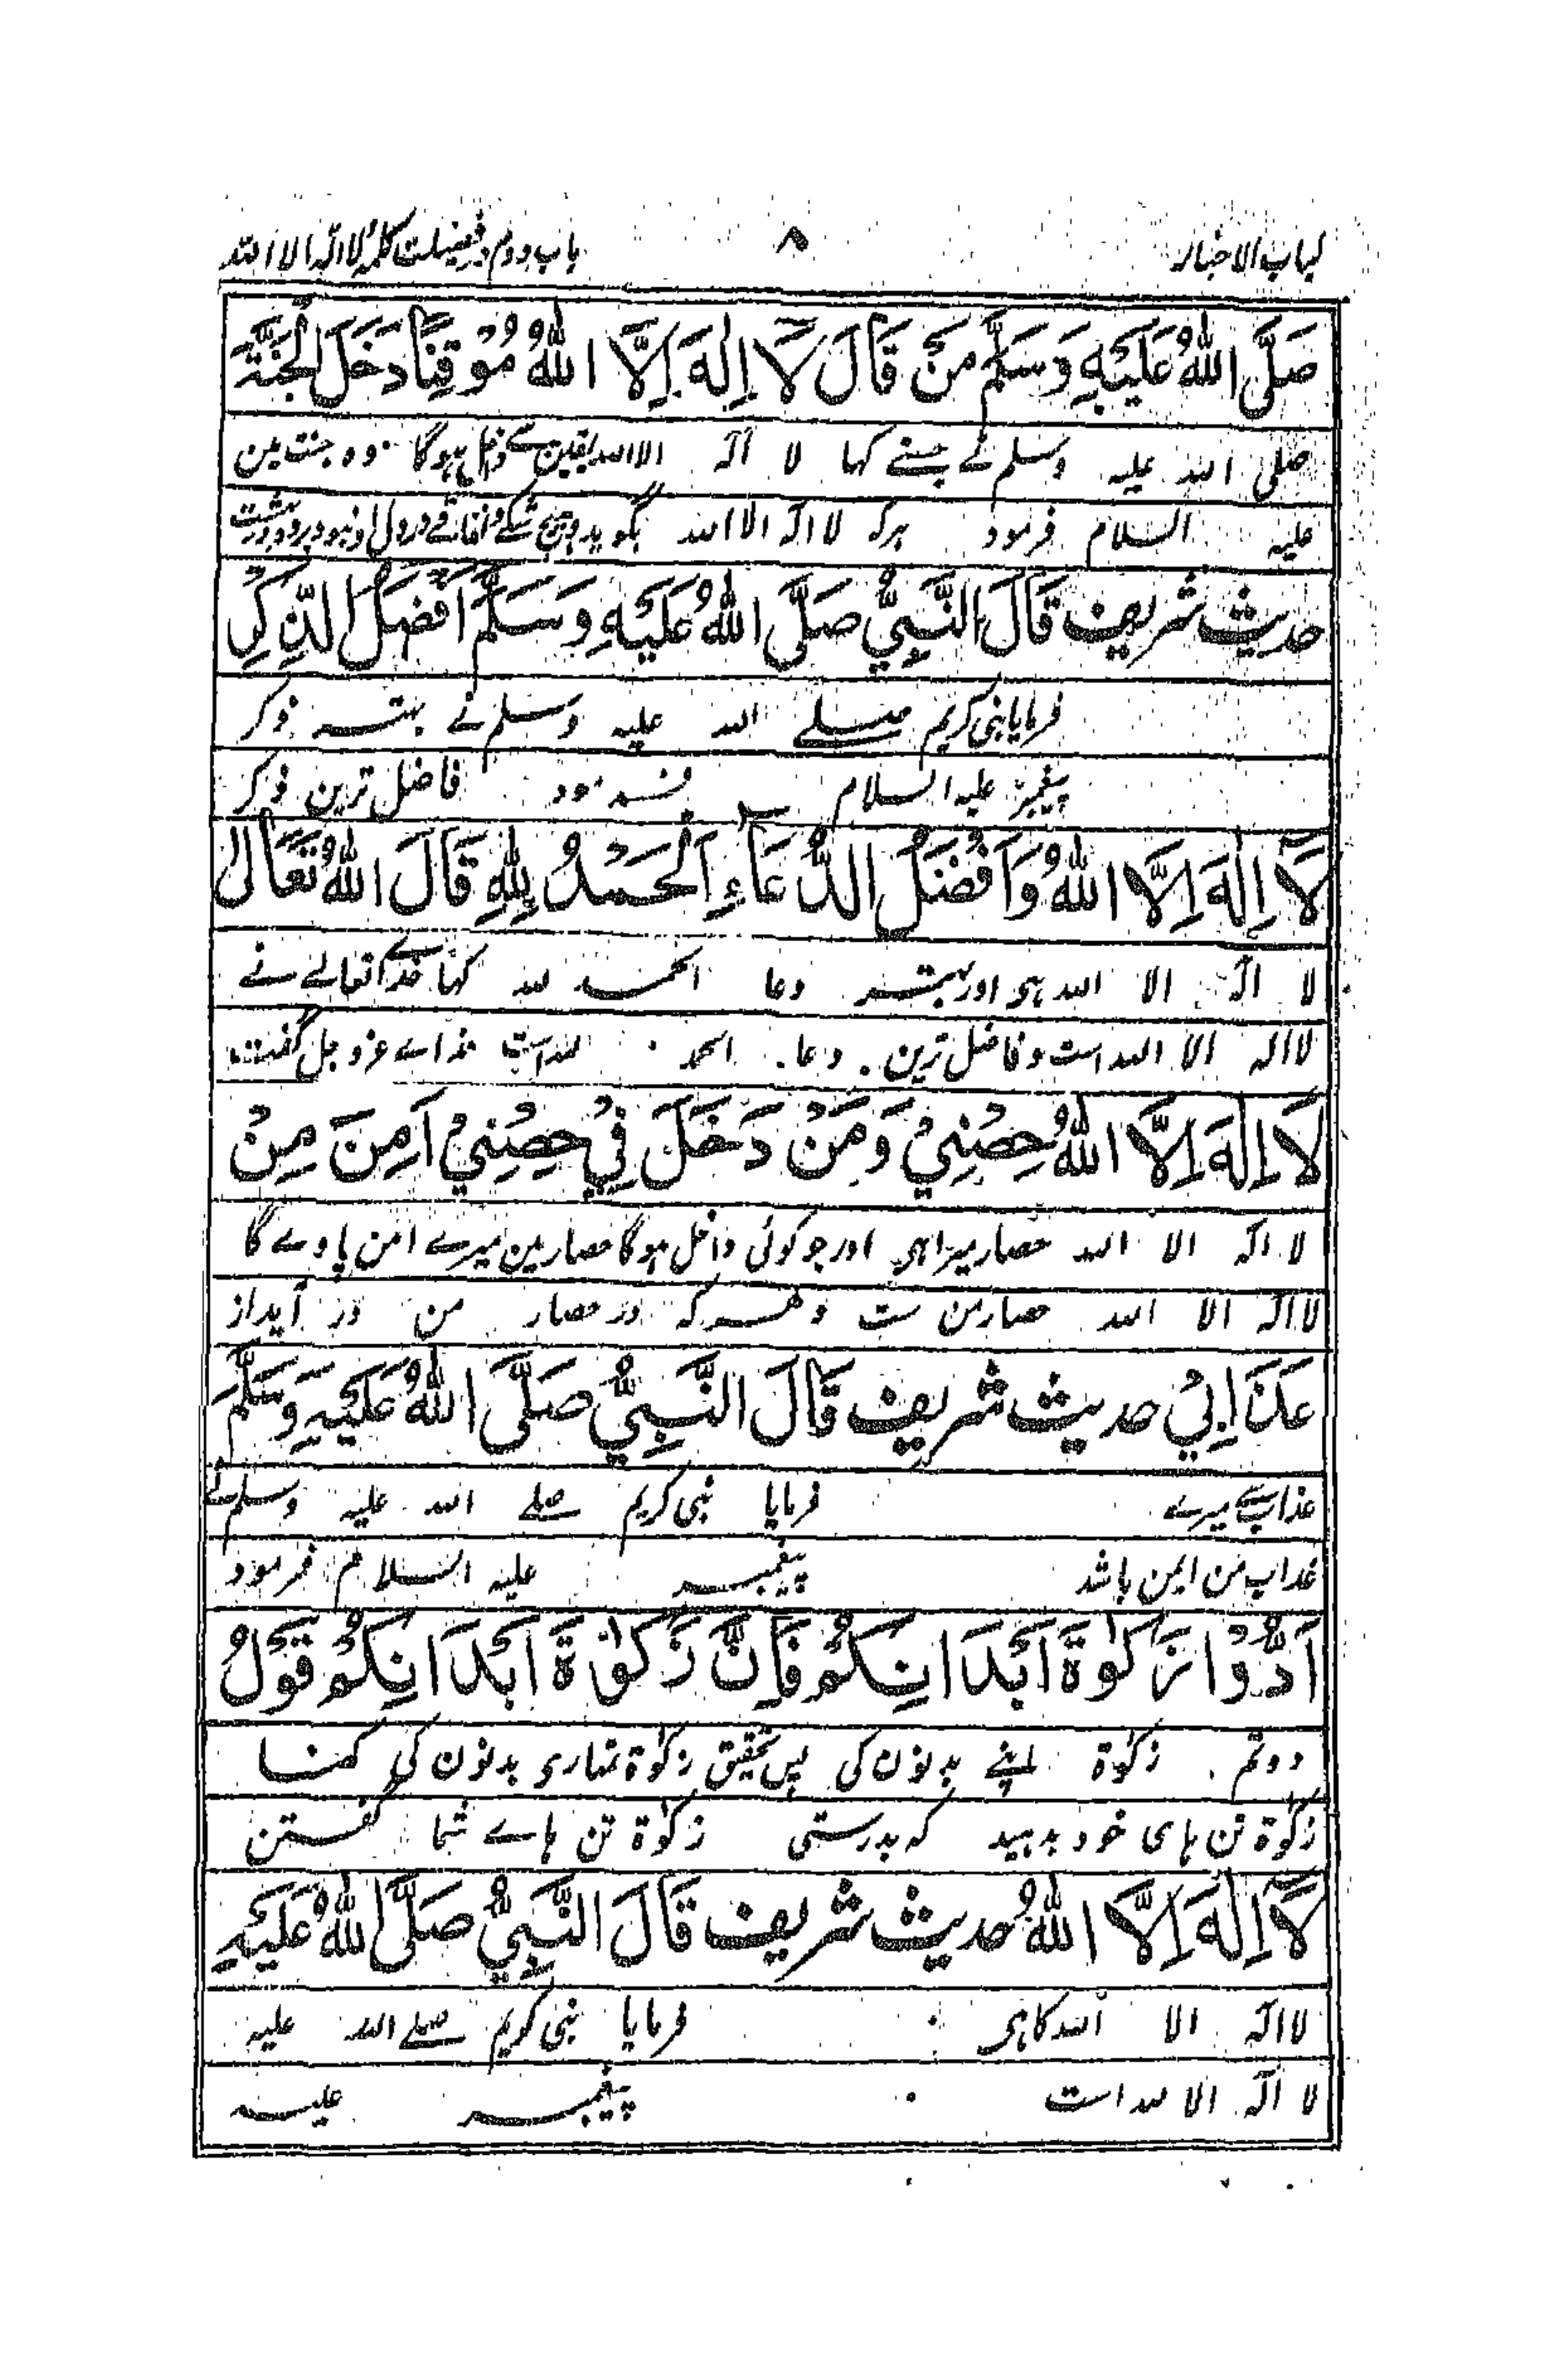 لباب الاخبار ۸ باب دوم در فضیلت کلمہ لا الہ الا اللہ
صَلَّی اللہُ عَلَیْہِ وَسَلَّمَ مَنْ قَالَ لَآ اِلٰہَ اِلَّا اللہُ مُوْقِنًا دَخَلَ الْجَنَّۃَ
صلی اللہ علیہ وسلم نے جسنے کہا لا الہ الا اللہ یقین سے داخل ہوگا وہ جنت مین
علیہ السلام فرمود ہرکہ لا الہ الا اللہ بگوید وہیچ شکے ونفاقے در دل او نبود برود در بہشت
حدیث شریف قَالَ النَّبِیُّ صَلَّی اللہُ عَلَیْہِ وَسَلَّمَ اَفْضَلُ الذِّکْرِ
فرمایا نبی کریم صلے اللہ علیہ وسلم نے بہتر ذکر
پیغمبر علیہ السلام فرمود فاضل ترین ذکر
لَآ اِلٰہَ اِلَّا اللہُ وَاَفْضَلُ الدُّعَآءِ اَلْحَمْدُ لِلّٰہِ قَالَ اللہُ تَعَالٰی
لا الہ الا اللہ ہی اور بہتر دعا الحمد للہ کہا خداے تعالے نے
لا الہ الا اللہ است و فاضل ترین دعا الحمد للہ است خداے عزوجل گفت
لَا اِلٰہَ اِلَّا اللہُ حِصْنِیْ وَمَنْ دَخَلَ فِیْ حِصْنِیْ اَمِنَ مِنْ
لا الہ الا اللہ حصار میرا ہی اور جو کوئی داخل ہوگا حصار مین میرے امن پاوے گا
لا الہ الا اللہ حصار من ست وہرکہ در حصار من در آید از
عَذَابِیْ حدیث شریف قَالَ النَّبِیُّ صَلَّی اللہُ عَلَیْہِ وَسَلَّمَ
عذاب سے میرے فرمایا نبی کریم صلے اللہ علیہ وسلم نے
عذاب من ایمن باشد پیغمبر علیہ السلام فرمود
اَدُّوْا زَکٰوۃَ اَبْدَانِکُمْ فَاِنَّ زَکٰوۃَ اَبْدَانِکُمْ قَوْلُ
دو تم زکوٰۃ اپنے بدنون کی پس تحقیق زکوٰۃ تمہاری بدنون کی کہنا
زکوٰۃ تن ہای خود بدہید کہ بدرستی زکوٰۃ تن ہاے شما گفتن
لَآ اِلٰہَ اِلَّا اللہُ حدیث شریف قَالَ النَّبِیُّ صَلَّی اللہُ عَلَیْہِ
لا الہ الا اللہ کا ہی فرمایا نبی کریم صلے اللہ علیہ
لا الہ الا اللہ است پیغمبر علیہ